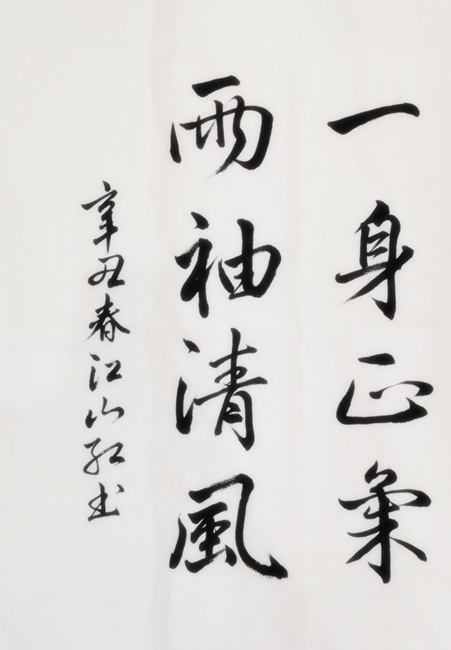 一身正氣
兩袖清風
辛丑春江山紅书